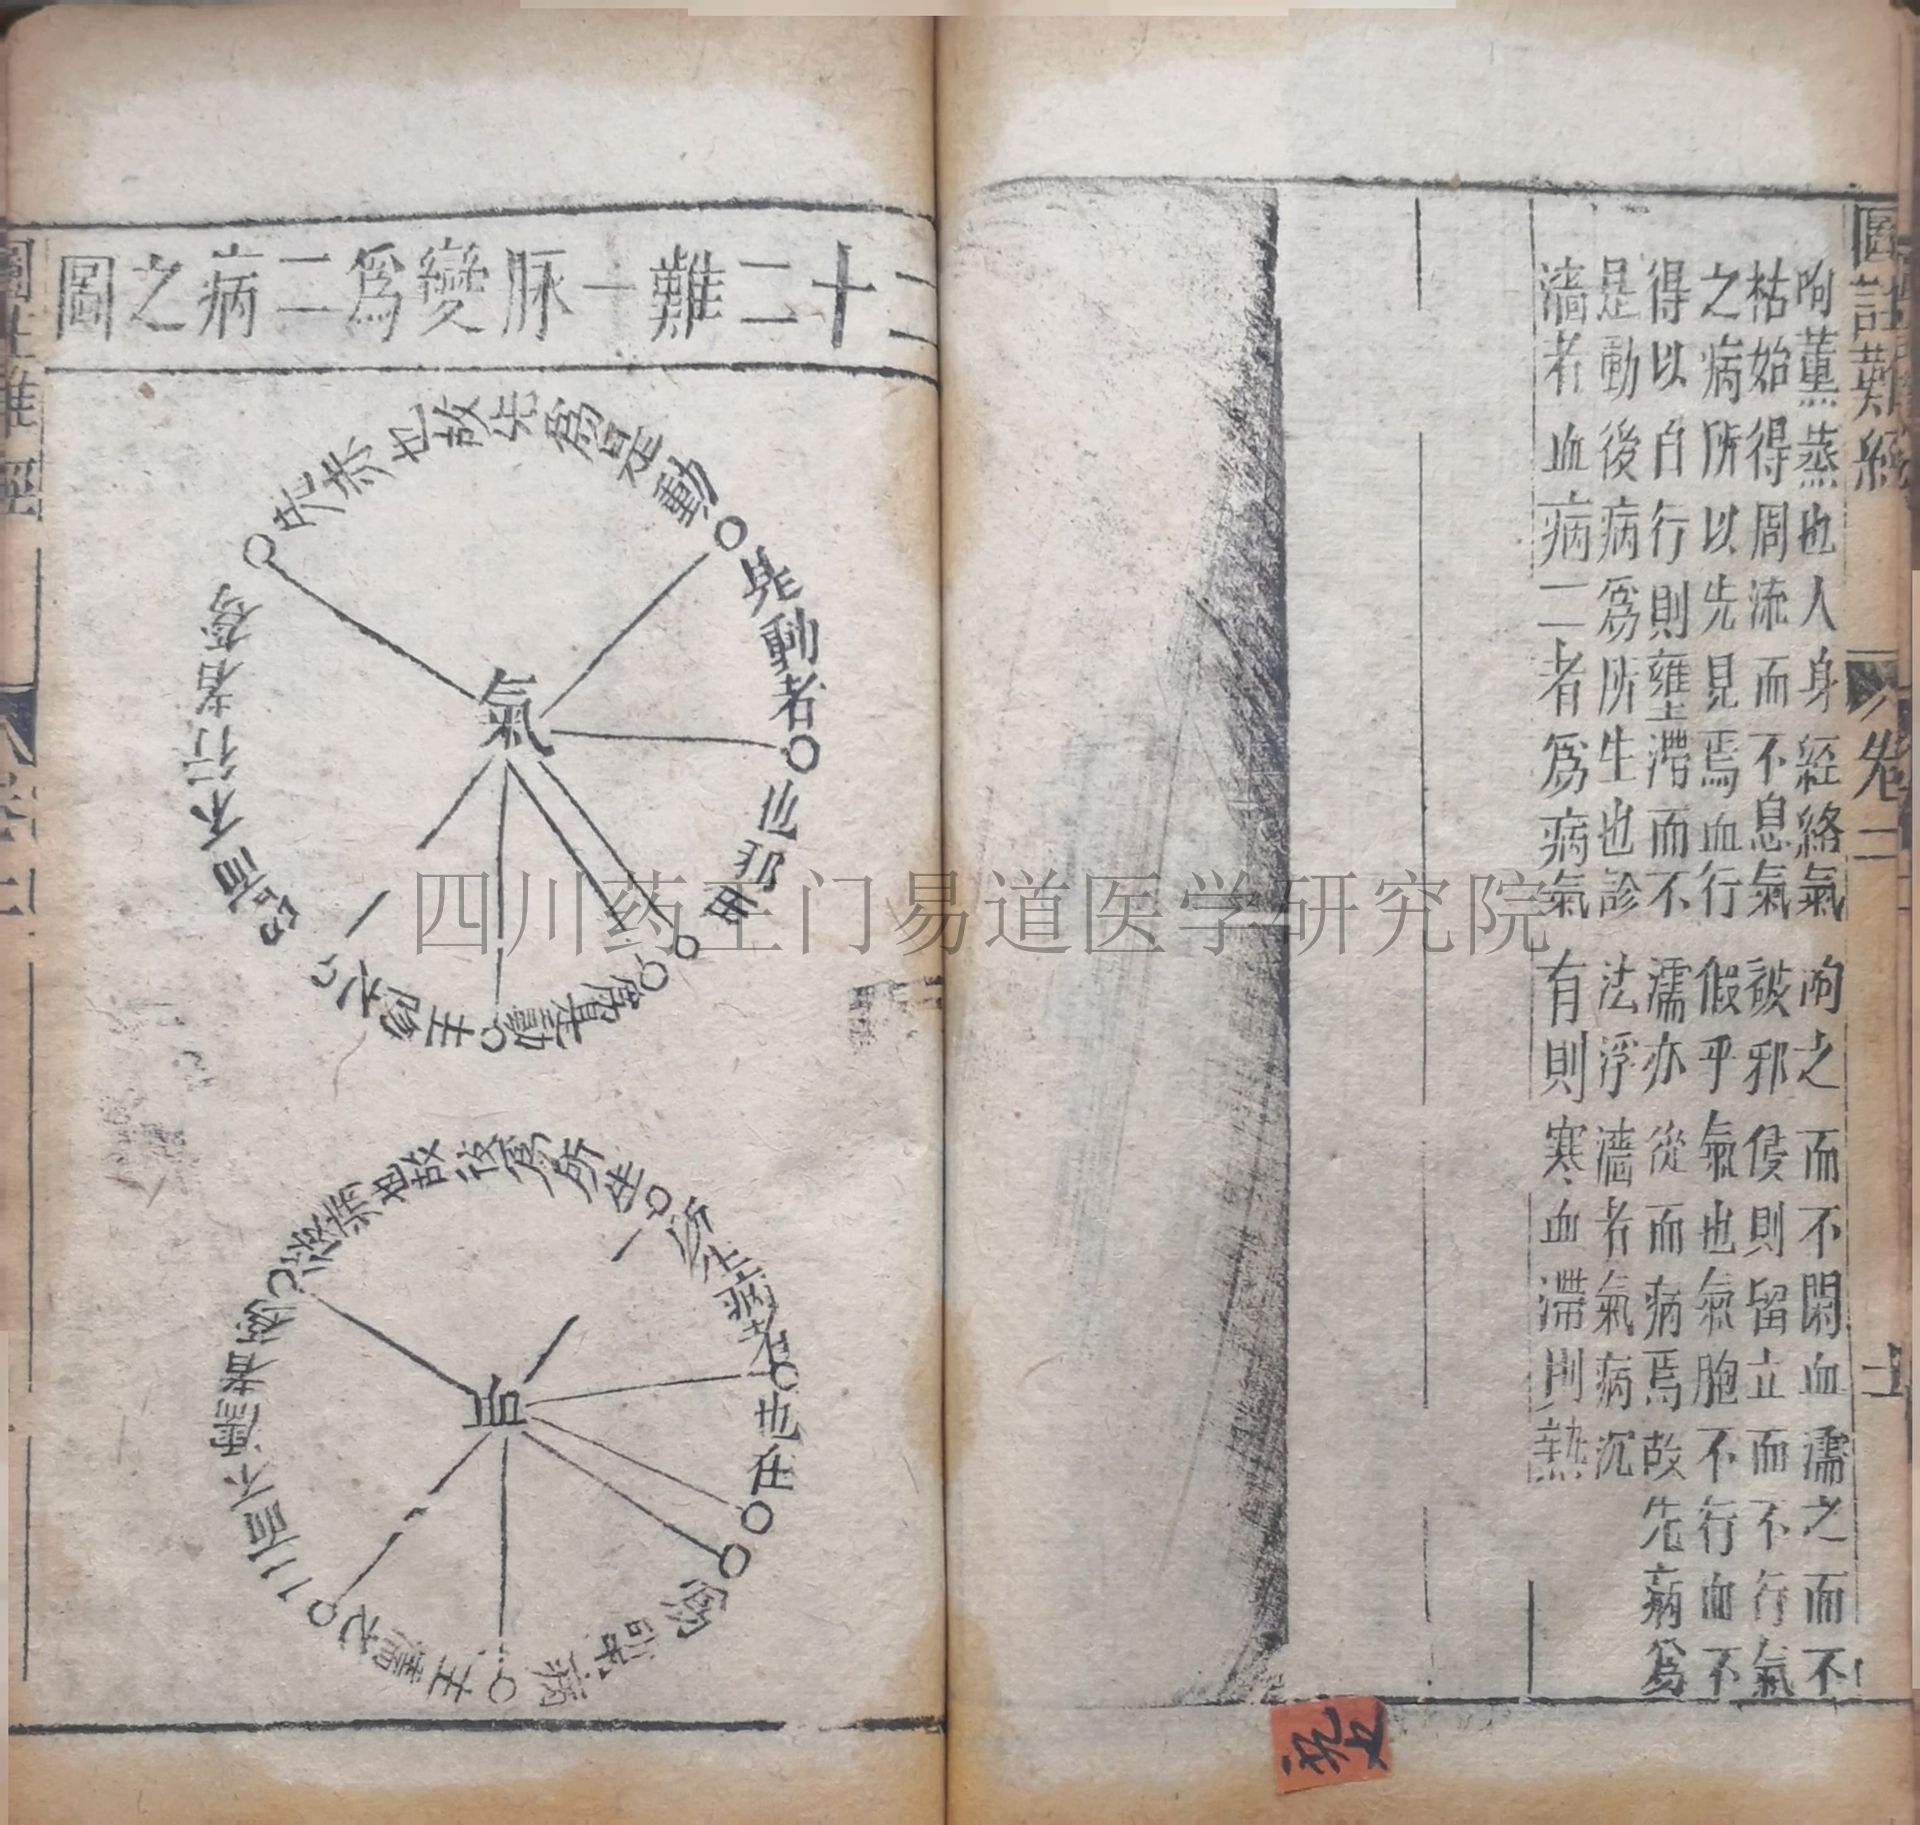 圖註難經
卷二
呴薰蒸也人身經絡氣呴之而不閑血濡之而不
枯始得周流而不息氣被邪侵則留立而不行氣
之病所以先見焉血行假乎氣也氣胞不行血不
得以自行則壅滯而不濡亦從而病焉故先病爲
是動後病爲所生也診法浮濇者氣病沉
濇者血病二者爲病氣有則寒血滯則熱
二十二難一脉變爲二病之圖
氣
是動者
也邪
爲是動
主
不行者爲
先病也故先爲是動
所生病者
也在
病
主濡之
不濡者爲
後病也故後爲所生
四川药王门易道医学研究院